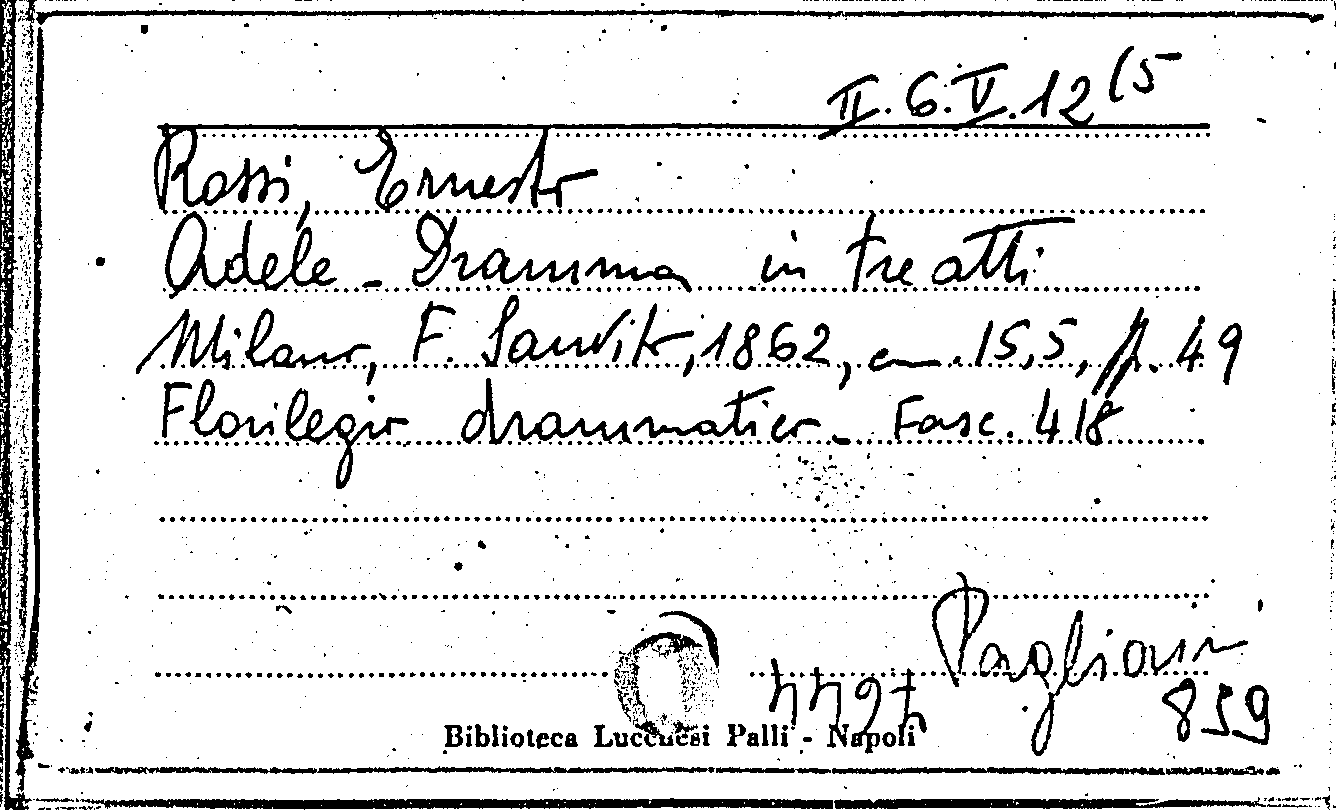 II.6.V.12(5
Rossi, Ernesto
Adele - Dramma in tre atti
Milano, F. Sanvito, 1862, cm. 15,5, pp. 49
Florilegio drammatico - Fasc. 418
Pagliani
859
Biblioteca Lucchesi Palli - Napoli